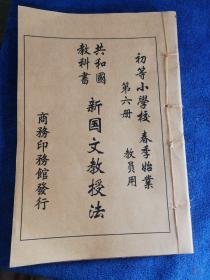 初等小學校 春季始業
第六册 教員用
共和國
教科書
新国文教授法
商務印務館發行